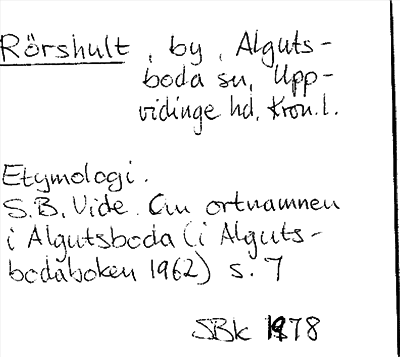 Rörshult, by, Alguts-
boda sn, Upp-
vidinge hd, Kron.l.
Etymologi.
S.B. Vide. Om ortnamnen
i Algutsboda (i Alguts-
bodaboken 1962) s. 7
SBk 1978